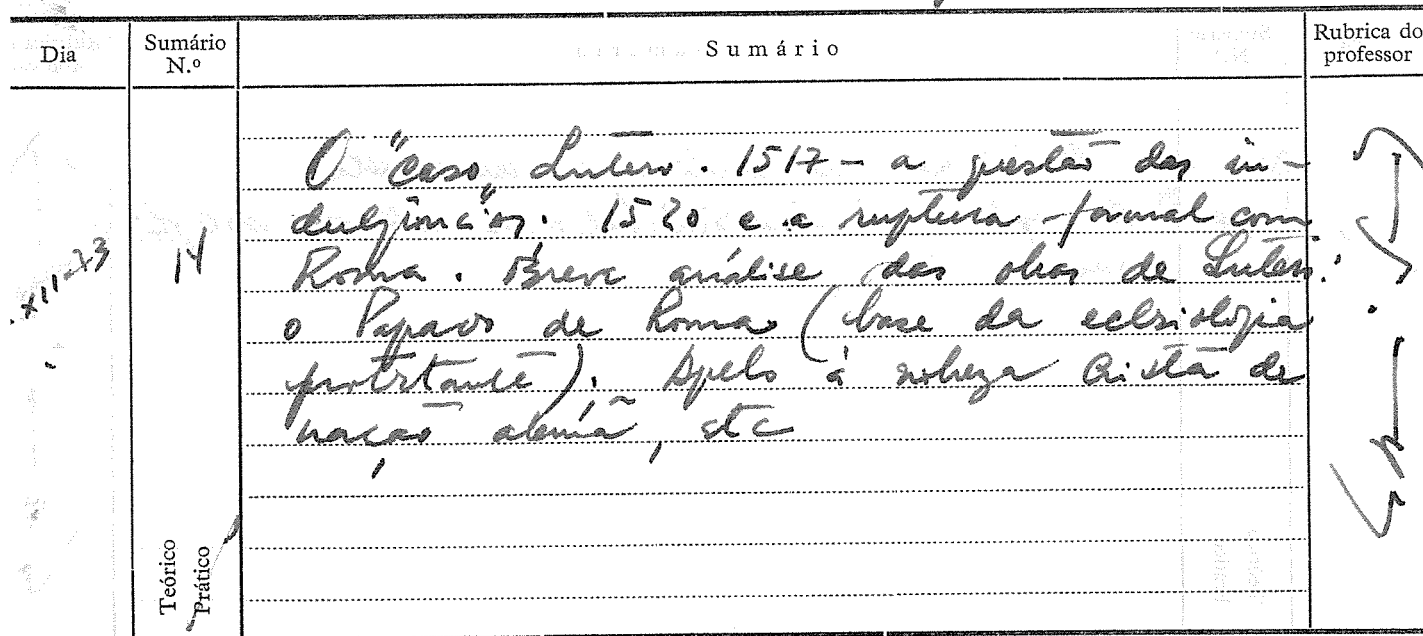 Dia
Sumário N.º
Sumário
Rubrica do professor
XII-73
14
O "caso" Lutero. 1517 - a questão das in-
dulgências. 1520 e a ruptura formal com
Roma. Breve análise das obras de Lutero:
o Papado de Roma (base da eclesiologia
protestante); Apelo à nobreza Cristã de
nação alemã, etc
Teórico
Prático